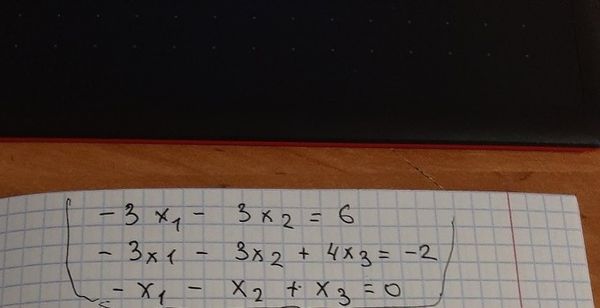 - 3 x₁ - 3x₂ = 6
- 3x1 - 3x₂ + 4x₃ = -2
- x₁ - x₂ + x₃ = 0